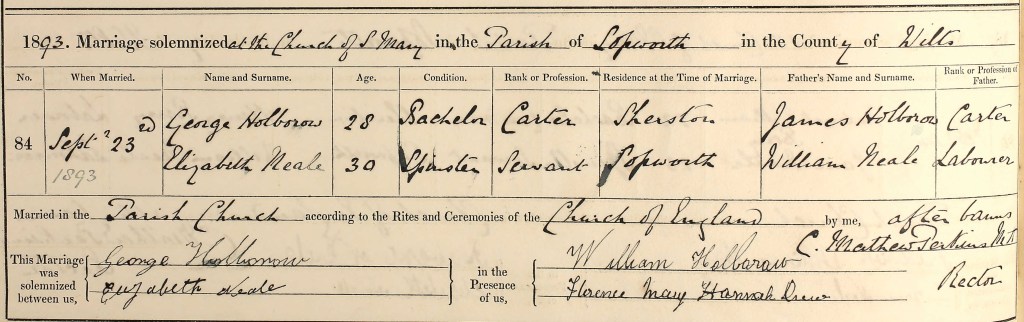 1893. Marriage solemnized at the Church of S Mary in the Parish of Sopworth in the County of Wilts
No. When Married. Name and Surname. Age. Condition. Rank or Profession. Residence at the Time of Marriage. Father's Name and Surname. Rank or Profession of Father.
84 Septr 23rd 1893 George Holborow 28 Bachelor Carter Sherston James Holborow Carter
Elizabeth Neale 30 Spinster Servant Sopworth William Neale Labourer
Married in the Parish Church according to the Rites and Ceremonies of the Church of England by me, after banns
C. Mathew Perkins M.A.
Rector
This Marriage was solemnized between us, George Holborow
Elizabeth Neale
in the Presence of us, William Holbarow
Florence Mary Hannah Drew